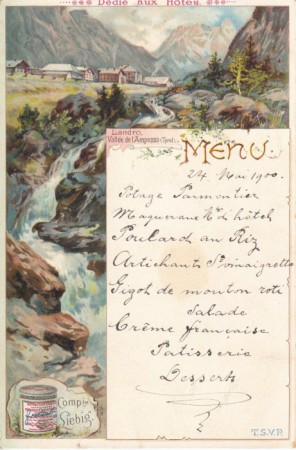 Dédié aux Hôtels
Landro,
Vallée de l'Ampezzo (Tyrol).
MENU.
24 Mai 1900.
Potage Parmentier
Maquereau Mtre d'hôtel
Poulard au Riz
Artichauts Sce vinaigrette
Gigot de mouton roti
Salade
Crème française
Patisserie
Desserts
Compie
Liebig
T.S.V.P.